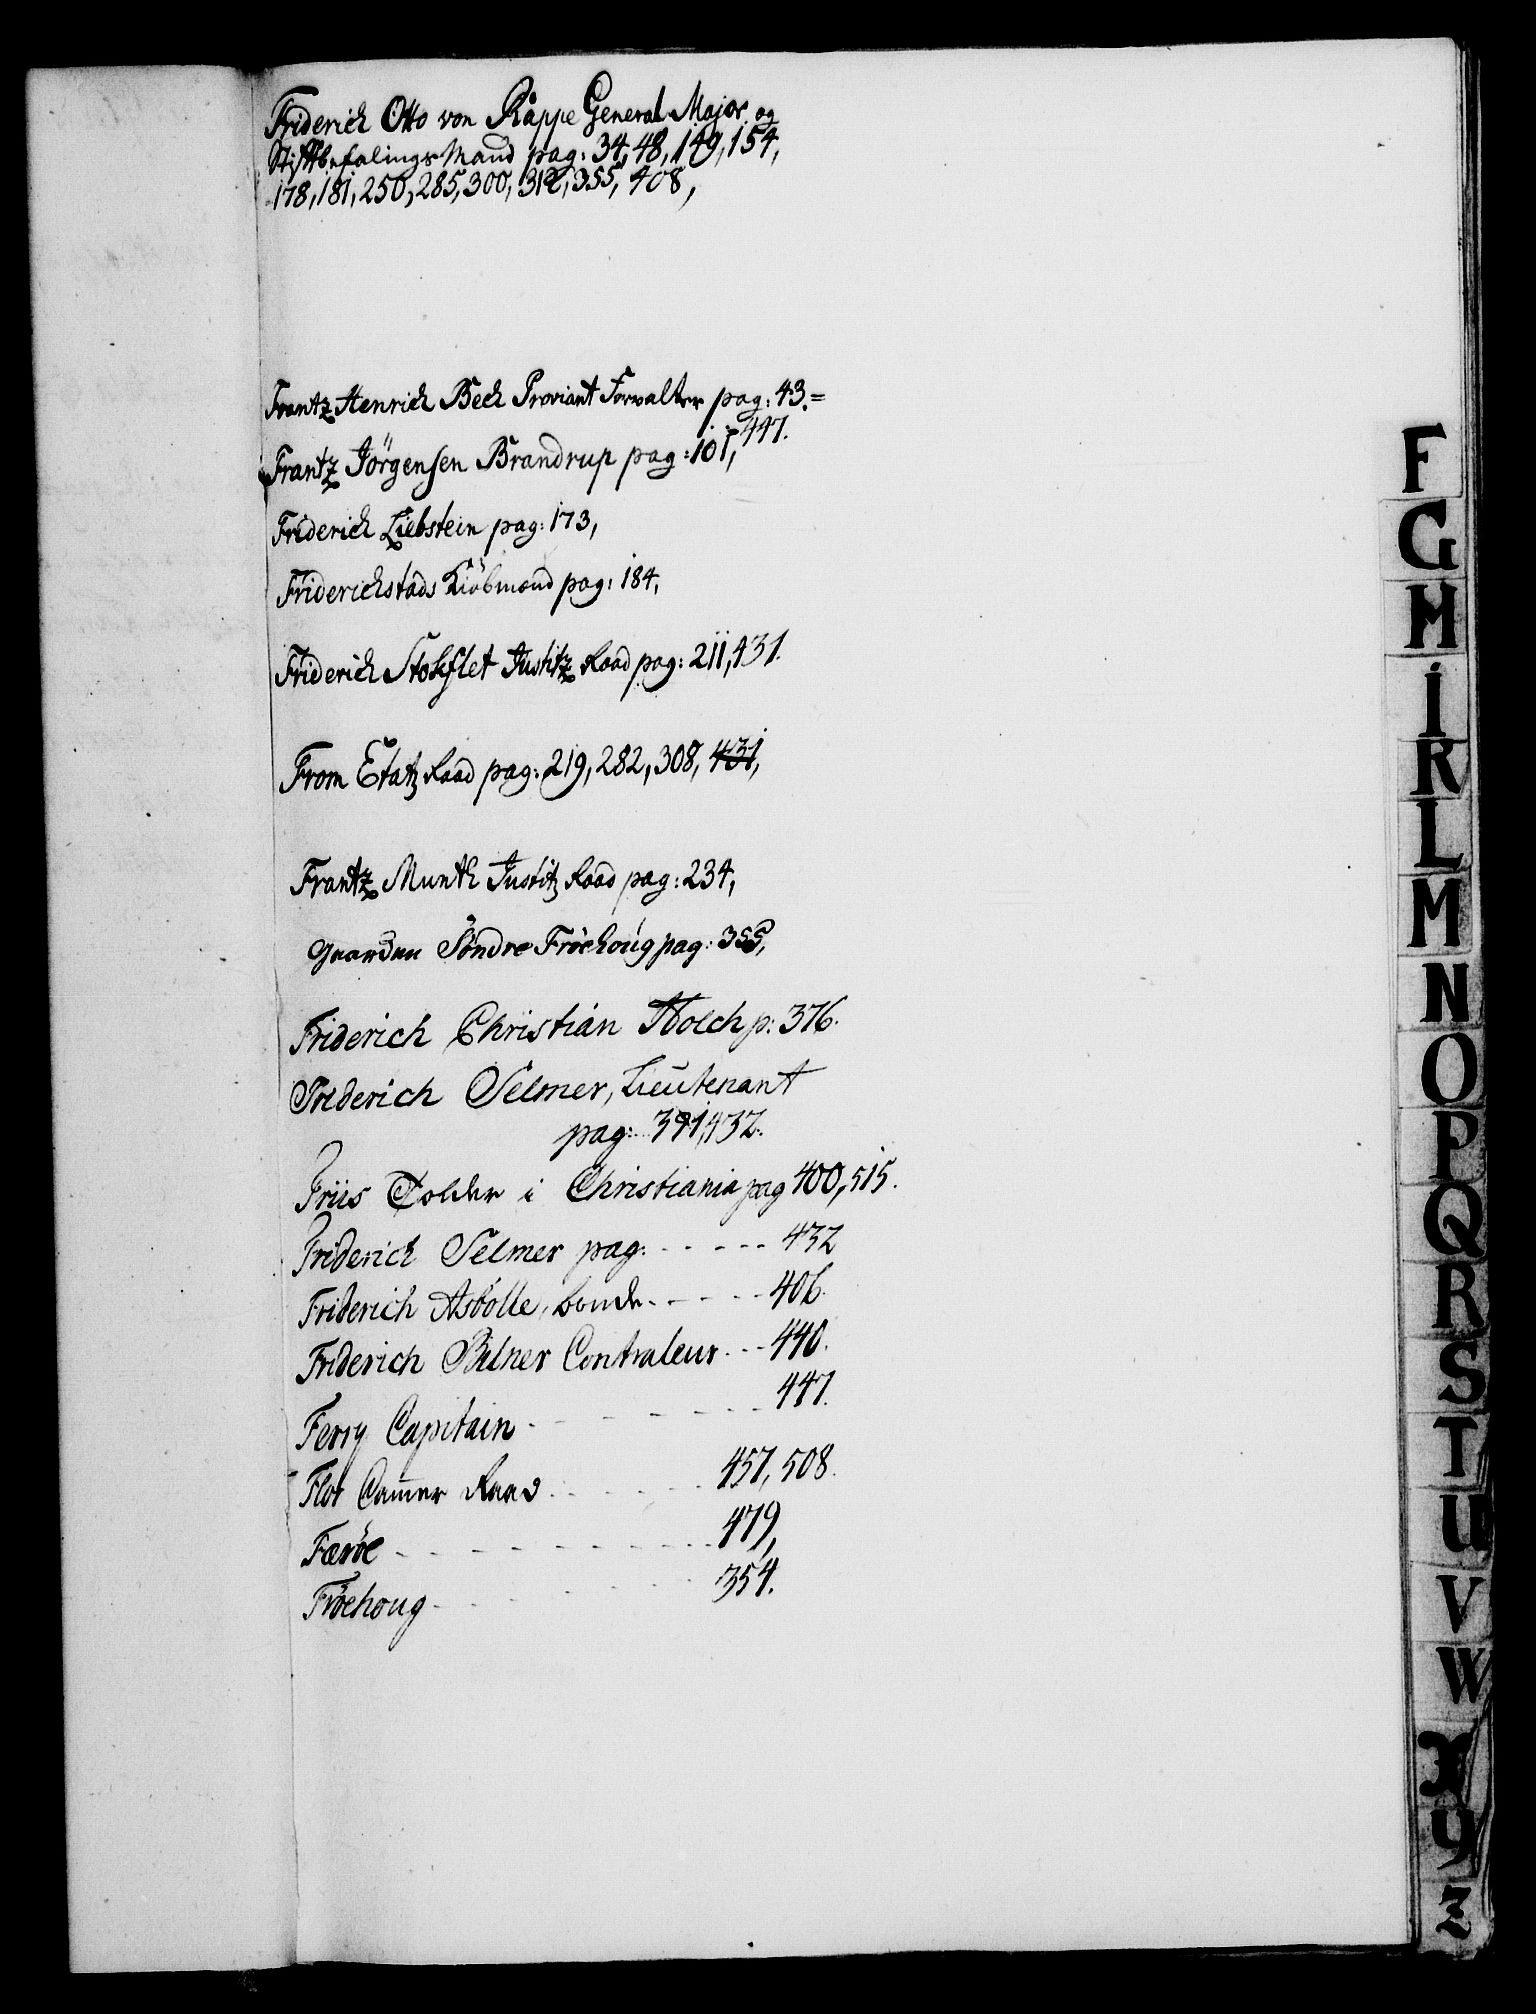 Friderich Otto von Rappe General Major og
Stiftbefalings Mand pag: 34, 48, 149, 154,
178, 181, 250, 285, 300, 312, 355, 408,
Frantz Henrich Beck Proviant Forvalter pag: 43.=
447.
Frantz Jörgensen Brandrup pag: 101,
Friderich Liebstein pag: 173,
Friderichstads Kiöbmænd pag: 184,
Friderich Stokflet Justitz Raad pag: 211, 431.
From Etatz Raad pag: 219, 282, 308, 431,
Frantz Munth Justitz Raad pag: 234,
Gaarden Söndre Fröehoug pag: 355,
Friderich Christian Holch p: 376.
Friderich Selmer, Lieutenant
pag: 391, 432.
Friis Tolder i Christiania pag 400, 515.
Friderich Selmer pag: - - - - - 432
Friderich Asbölle, bonde. - - - - 406.
Friderich Bilner Contraleur - - - 440.
Ferry Capitain - - - - - 447.
Flor Cammer Raad - - - - - 457, 508.
Færöe - - - - - - - - - 479,
Fröehoug - - - - - - - 354.
F
G
H
I
K
L
M
N
O
P
Q
R
S
T
U
V
W
X
Y
Z